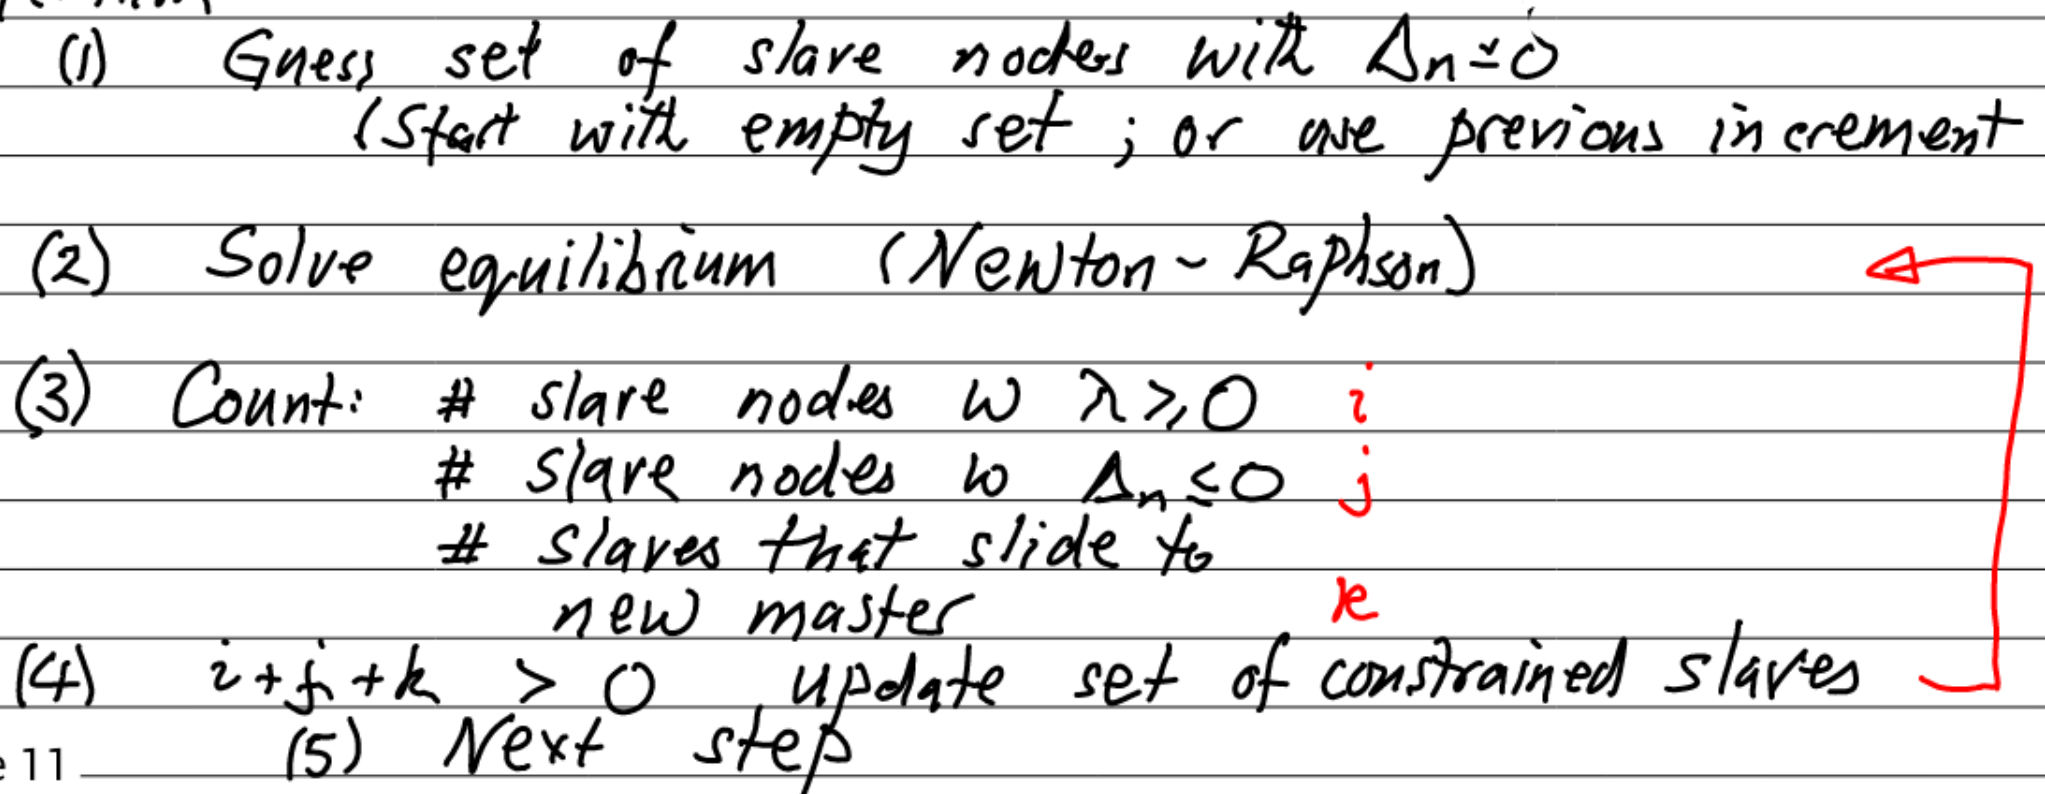 (1) Guess set of slave nodes with Δn = 0
(Start with empty set ; or use previous increment
(2) Solve equilibrium (Newton - Raphson)
(3) Count: # slave nodes w λ ⩾ 0 i
# slave nodes w Δn ≤ 0 j
# slaves that slide to
new master k
(4) i + j + k > 0 update set of constrained slaves
(5) Next step
11